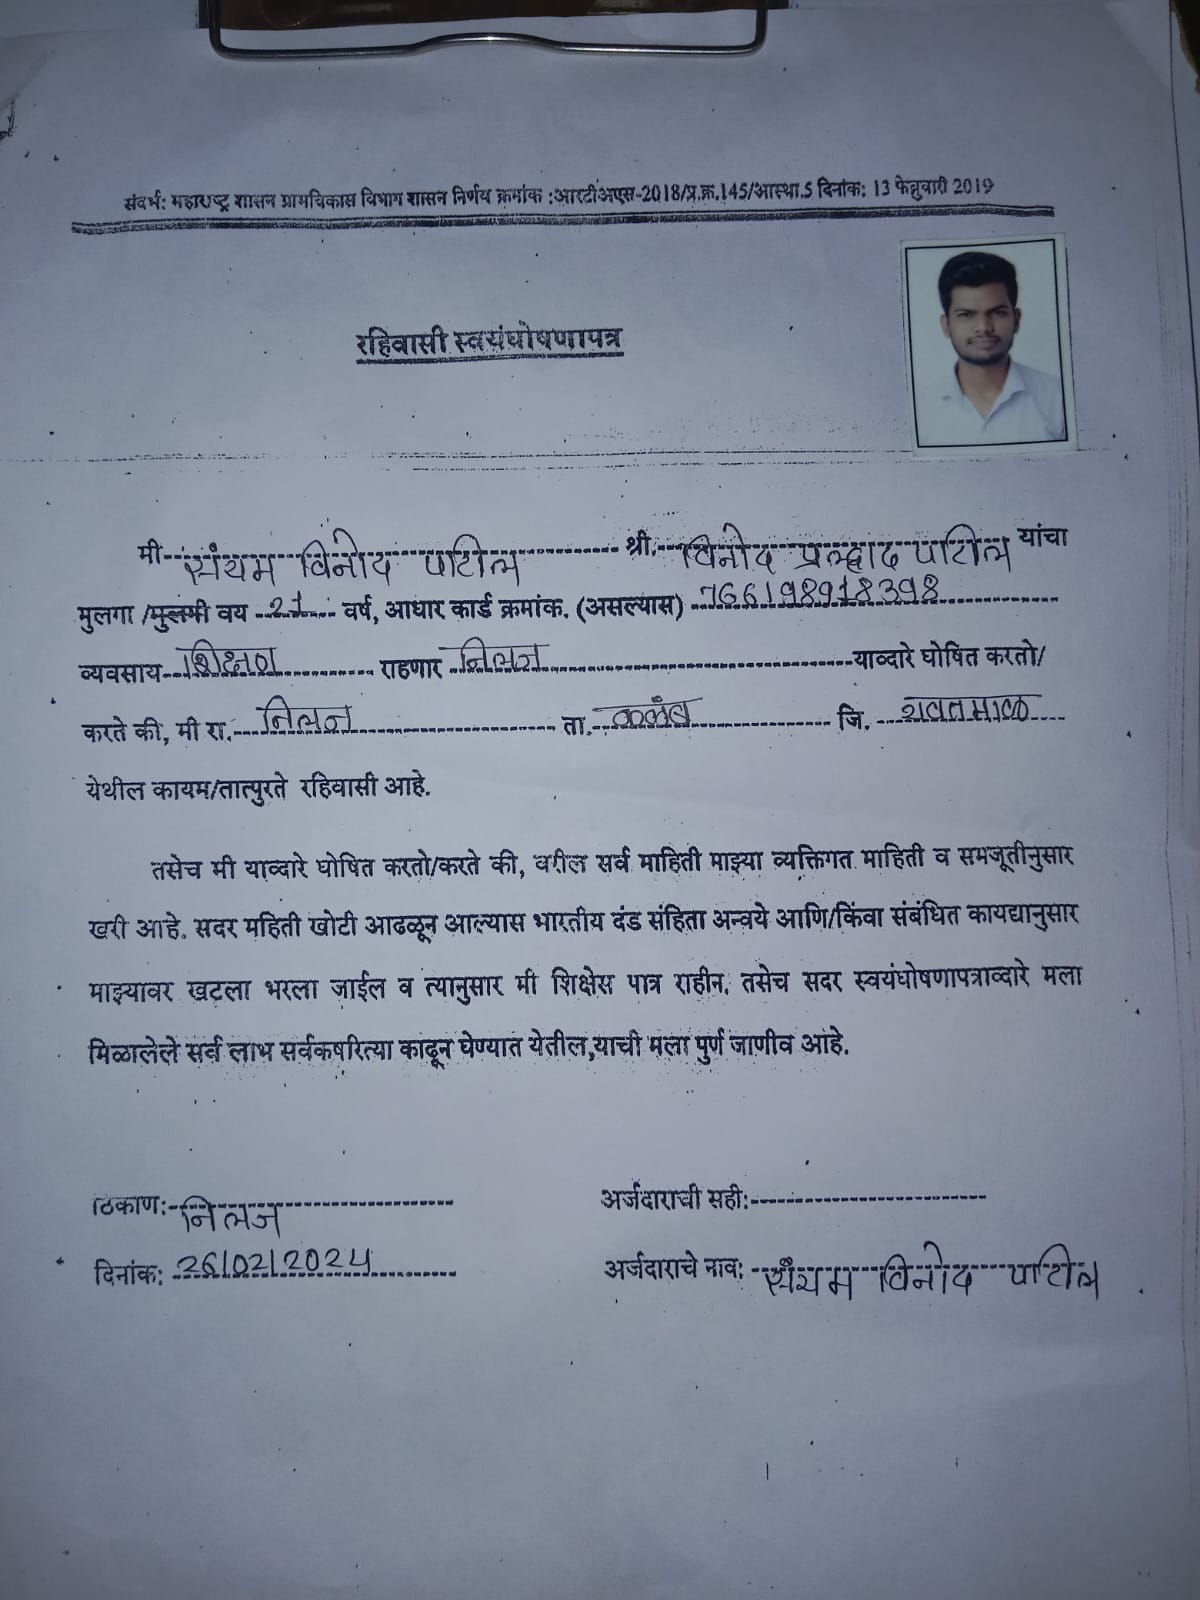 संदर्भ: महाराष्ट्र शासन ग्रामविकास विभाग शासन निर्णय क्रमांक :आरटीअेएस-2018/प्र.क्र.145/आस्था.5 दिनांक: 13 फेब्रुवारी 2019
रहिवासी स्वयंघोषणापत्र
मी संयम विनोद पाटील श्री. विनोद प्रल्हाद पाटील यांचा
मुलगा /मुलगी वय 21 वर्ष, आधार कार्ड क्रमांक. (असल्यास) 766198918398
व्यवसाय शिक्षण राहणार निलज याव्दारे घोषित करतो/
करते की, मी रा. निलज ता. कळंब जि. यवतमाळ
येथील कायम/तात्पुरते रहिवासी आहे.
तसेच मी याव्दारे घोषित करतो/करते की, वरील सर्व माहिती माझ्या व्यक्तिगत माहिती व समजूतीनुसार
खरी आहे. सदर महिती खोटी आढळून आल्यास भारतीय दंड संहिता अन्वये आणि/किंवा संबंधित कायद्यानुसार
माझ्यावर खटला भरला जाईल व त्यानुसार मी शिक्षेस पात्र राहीन. तसेच सदर स्वयंघोषणापत्राव्दारे मला
मिळालेले सर्व लाभ सर्वकषरित्या काढून घेण्यात येतील,याची मला पुर्ण जाणीव आहे.
ठिकाण:- निलज अर्जदाराची सही:-
दिनांक: 26/02/2024 अर्जदाराचे नाव: संयम विनोद पाटील